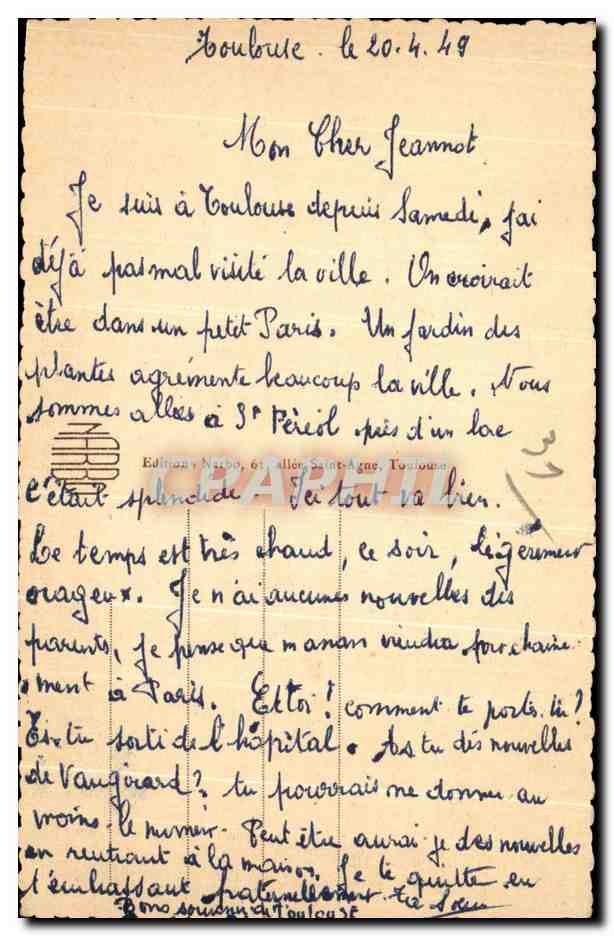 Toulouse. le 20.4.49
Mon Cher Jeannot.
Je suis à Toulouse depuis Samedi, j'ai
déjà pas mal visité la ville. On croirait
être dans un petit Paris. Un Jardin des
plantes agrémente beaucoup la ville. Nous
sommes allés à St Féréol près d'un lac
31
NARBO
Editions Narbo, 61 allée Saint-Agne, Toulouse
CPAPHIL
C'était splendide Ici tout va bien.
Le temps est très chaud, ce soir, légèrement
orageux. Je n'ai aucunes nouvelles des
parents, je pense que maman viendra prochaine-
ment à Paris. Et toi! comment te portes-tu?
Es-tu sorti de l'hôpital. As tu des nouvelles
de Vaugirard? tu pourrais me donner au
moins le numéro. Peut être aurai-je des nouvelles
en rentrant à la maison. Je te quitte en
t'embrassant fraternellement. Ta Soeur
Bons souvenir de Toulouse